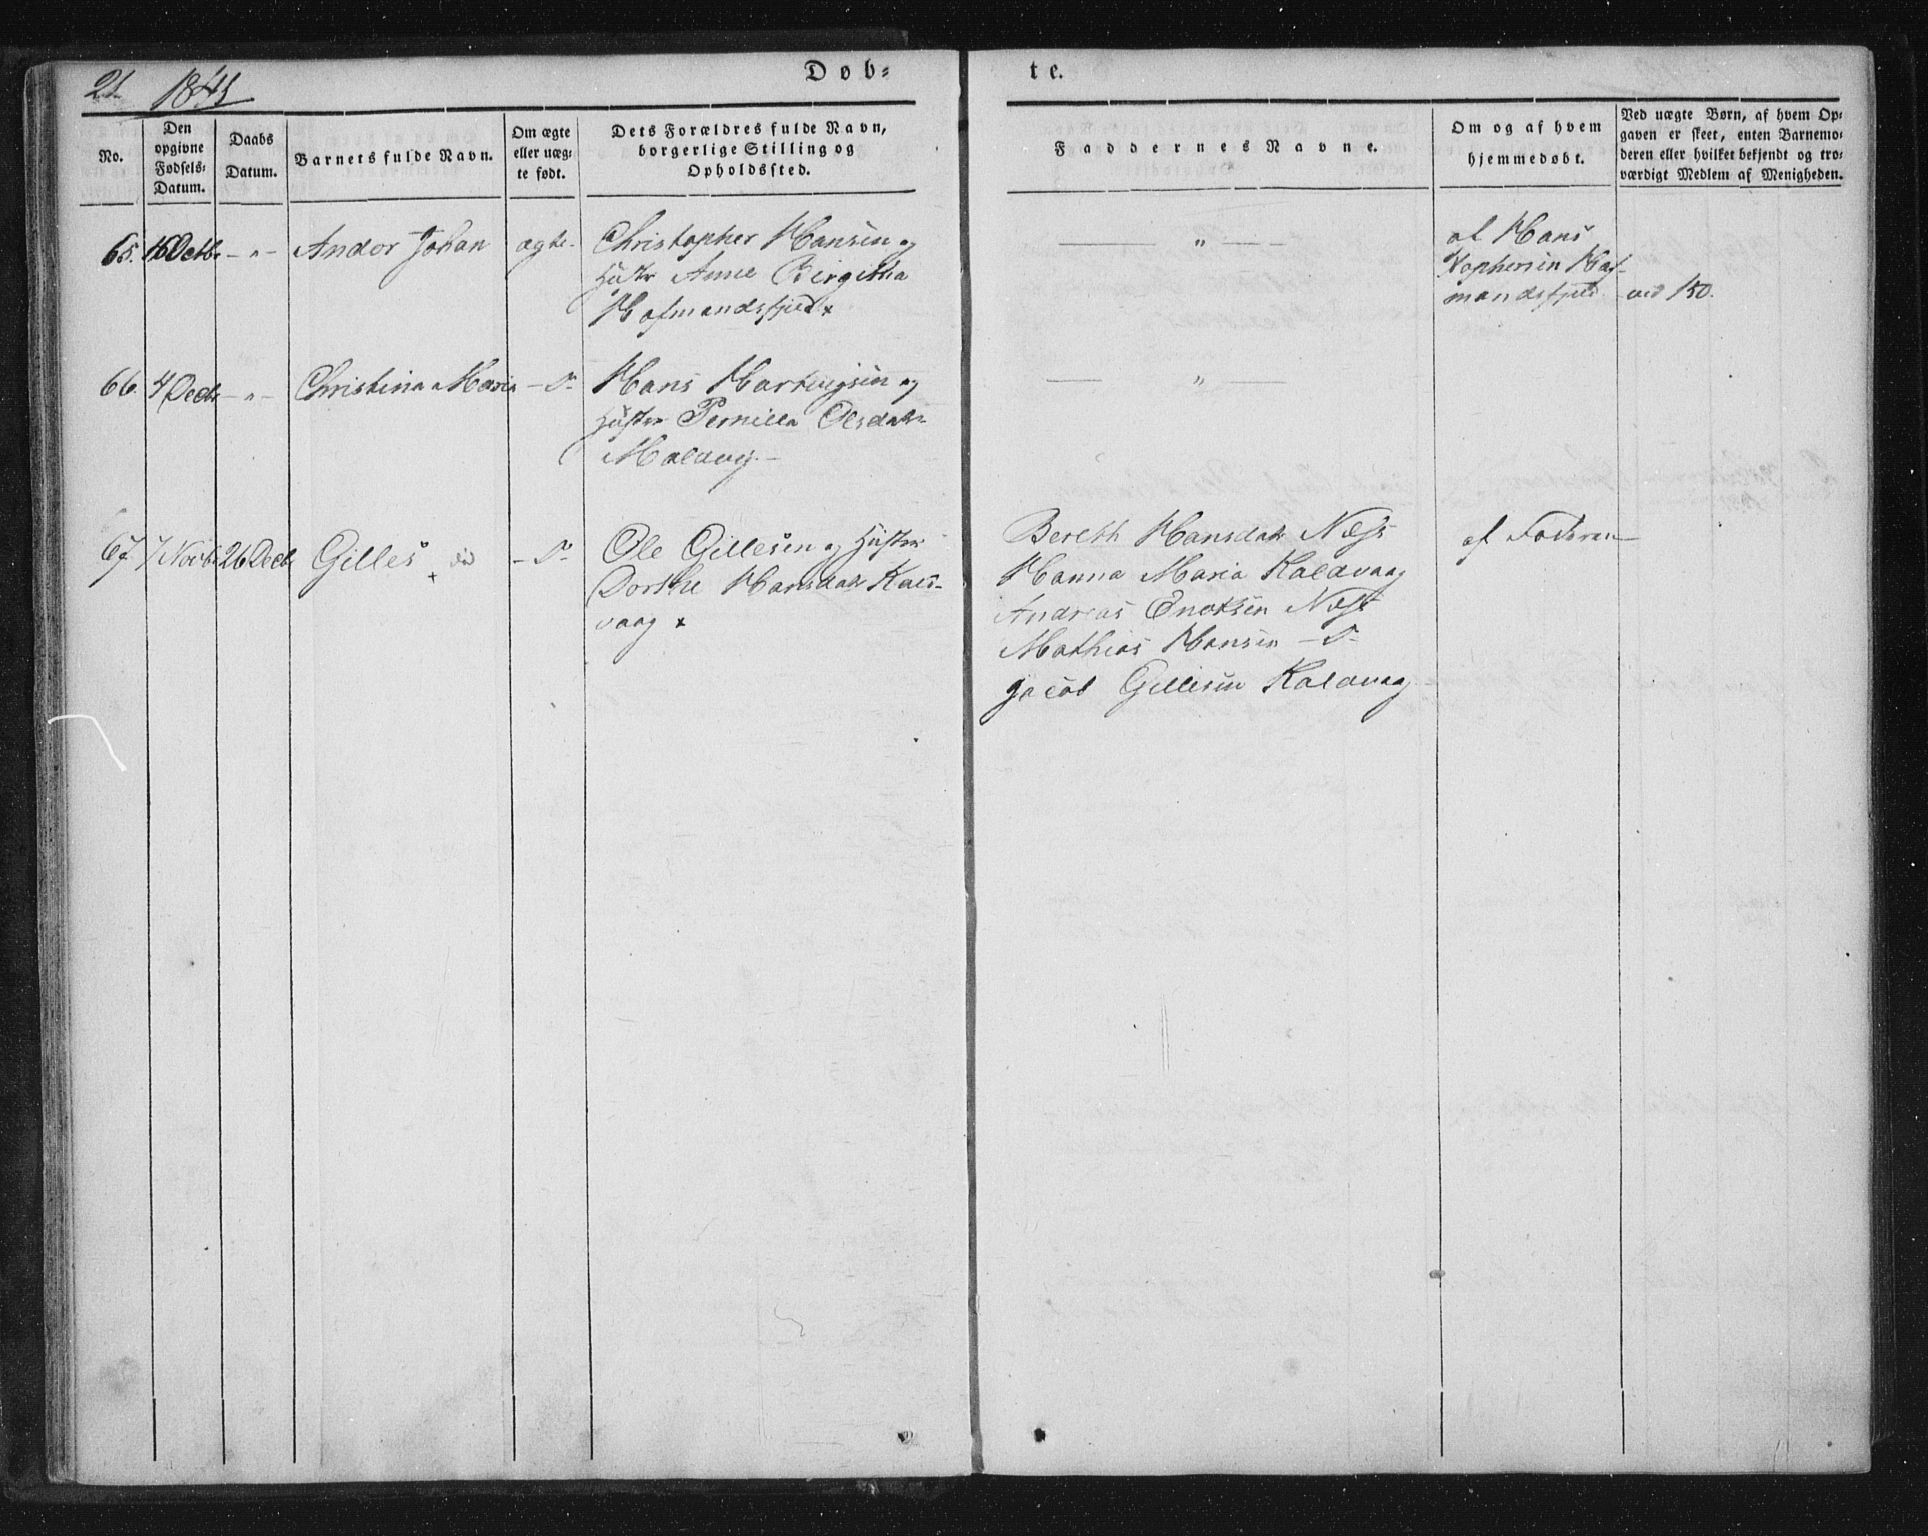 21 1845
Døb=
te.
No.
Den
opgivne
Fødsels=
Datum.
Daabs
Datum.
Barnets fulde Navn.
Om ægte
eller uæg=
te født.
Dets Forældres fulde Navn,
borgerlige Stilling og
Opholdssted.
Faddernes Navne.
Om og af hvem
hjemmedøbt.
Ved uægte Børn, af hvem Op=
gaven er skeet, enten Barnemo=
deren eller hvilket bekjendt og tro=
værdigt Medlem af Menigheden.
65. 16 Octbr — " — Andor Johan ægte Christopher Hansen og
Hustr Anne Birgitha
Hofmandsfjeld x
— " —
af Hans
Kophersen Hof=
mandsfjeld
ved 150.
66. 4 Decbr — " — Christina Maria — D Hans Hartvigsen og
Hustr Pernilla Olsdatr
Molavig —
— " —
67. 7 Novbr 26 Decbr Gilles + — D Ole Gillesen og Hustr
Dorthe Hansdatr Kals=
vaag x
Bereth Hansdatr Næss
Hanna Maria Kaldvaag
Andreas Enoksen Næss
Mathias Hansen — D
Jacob Gillesen Kaldvaag
af Fadren